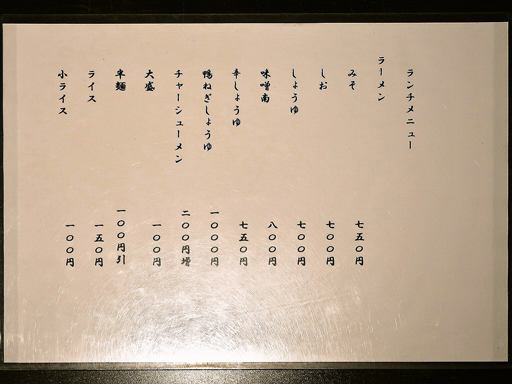 ランチメニュー
ラーメン
みそ 七五〇円
しお 七〇〇円
しょうゆ 七〇〇円
味噌南 八〇〇円
辛しょうゆ 七五〇円
鴨ねぎしょうゆ 一〇〇〇円
チャーシューメン 二〇〇円増
大盛 一〇〇円
半麺 一〇〇円引
ライス 一五〇円
小ライス 一〇〇円